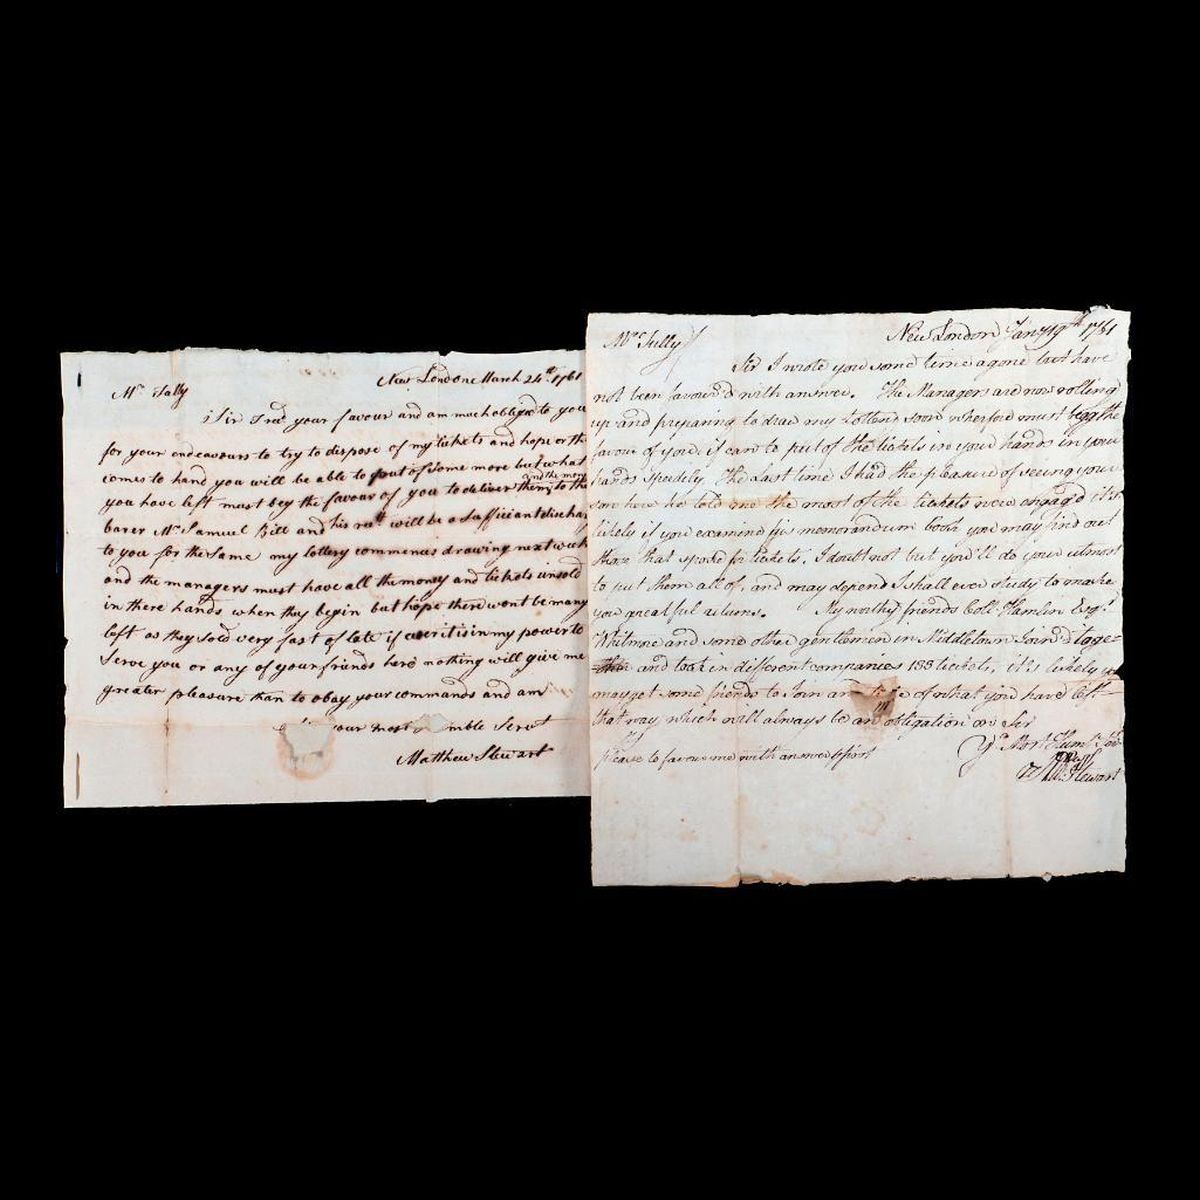 New London March 24th 1761
Mr Tully
Sir I recd your favour and am much obliged to you
for your endeavours to try to dispose of my tickets and hope or the
comes to hand you will be able to put of some more but what
and the mony
you have left must beg the favour of you to deliver them to the
barer Mr Samuel Bill and his rect will be a sufficiant dischar
to you for the same my lottery commences drawing next week
and the managers must have all the money and tickets unsold
in there hands when they begin but hope there wont be many
left as they sold very fast of late if ever it is in my power to
serve you or any of your friends here nothing will give me
greater pleasure than to obay your commands and am
your most mble Servt
Matthew Stewart
New London Jany 19th 1761
Mr Tully
Sir I wrote you some time agone but have
not been favour'd with answer. The Managers are now rolling
up and preparing to draw my Lottery soon wherfore must begg the
favour of you if can to put of the tickets in your hands in your
hands speedely. The last time I had the pleasure of seeing your
son here he told me the most of the tickets were engag'd it's
likely if you examine his memorandum book you may find out
them that spoke for tickets. I doubt not but you'll do your utmost
to put them all of, and may depend I shall ever study to make
you greatful returns. My worthy friends Coll. Hamlin Esqr
Whitmore and some other gentlemen in Middletown Join'd togge=
and took in different companies 133 tickets, it's likely
may get some friends to Join and of what you have left
that way, which will always be an obligation on Sir
Yr Most Huml Servt
please to favour me with answer pr post
Mw Stewart